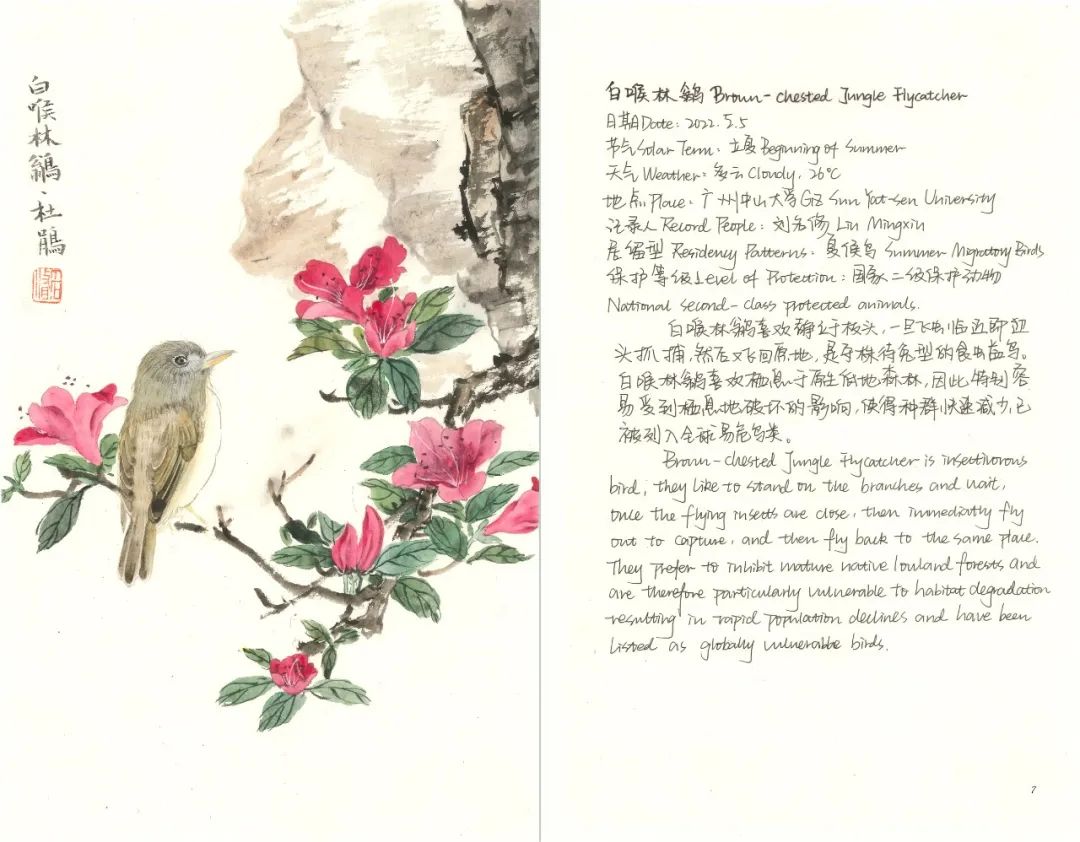 白喉林鶲·杜鵑
白喉林鶲 Brown-chested Jungle Flycatcher
日期Date：2022.5.5
节气Solar Term：立夏Beginning of Summer
天气Weather：多云Cloudy，26℃
地点Place：广州中山大学GZ Sun Yat-sen University
记录人Record People：刘名修 Liu Mingxiu
居留型 Residency Patterns：夏候鸟 Summer Migratory Birds
保护等级Level of Protection：国家二级保护动物
National second-class protected animals.
白喉林鶲喜欢静立于枝头，一旦飞虫临近即
头抓捕，然后又飞回原地，是守株待兔型的食虫益鸟。
白喉林鶲喜欢栖息于原生低地森林，因此特别容
易受到栖息地破坏的影响，使得种群快速减少，已
被列入全球易危鸟类。
Brown-chested Jungle Flycatcher is insectivorous
bird, they like to stand on the branches and wait,
once the flying insects are close, then immediatly fly
out to capture, and then fly back to the same place.
They prefer to inhibit mature native lowland forests and
are therefore particularly vulnerable to habitat degradation
resulting in rapid population declines and have been
listed as globally vulnerable birds.
7